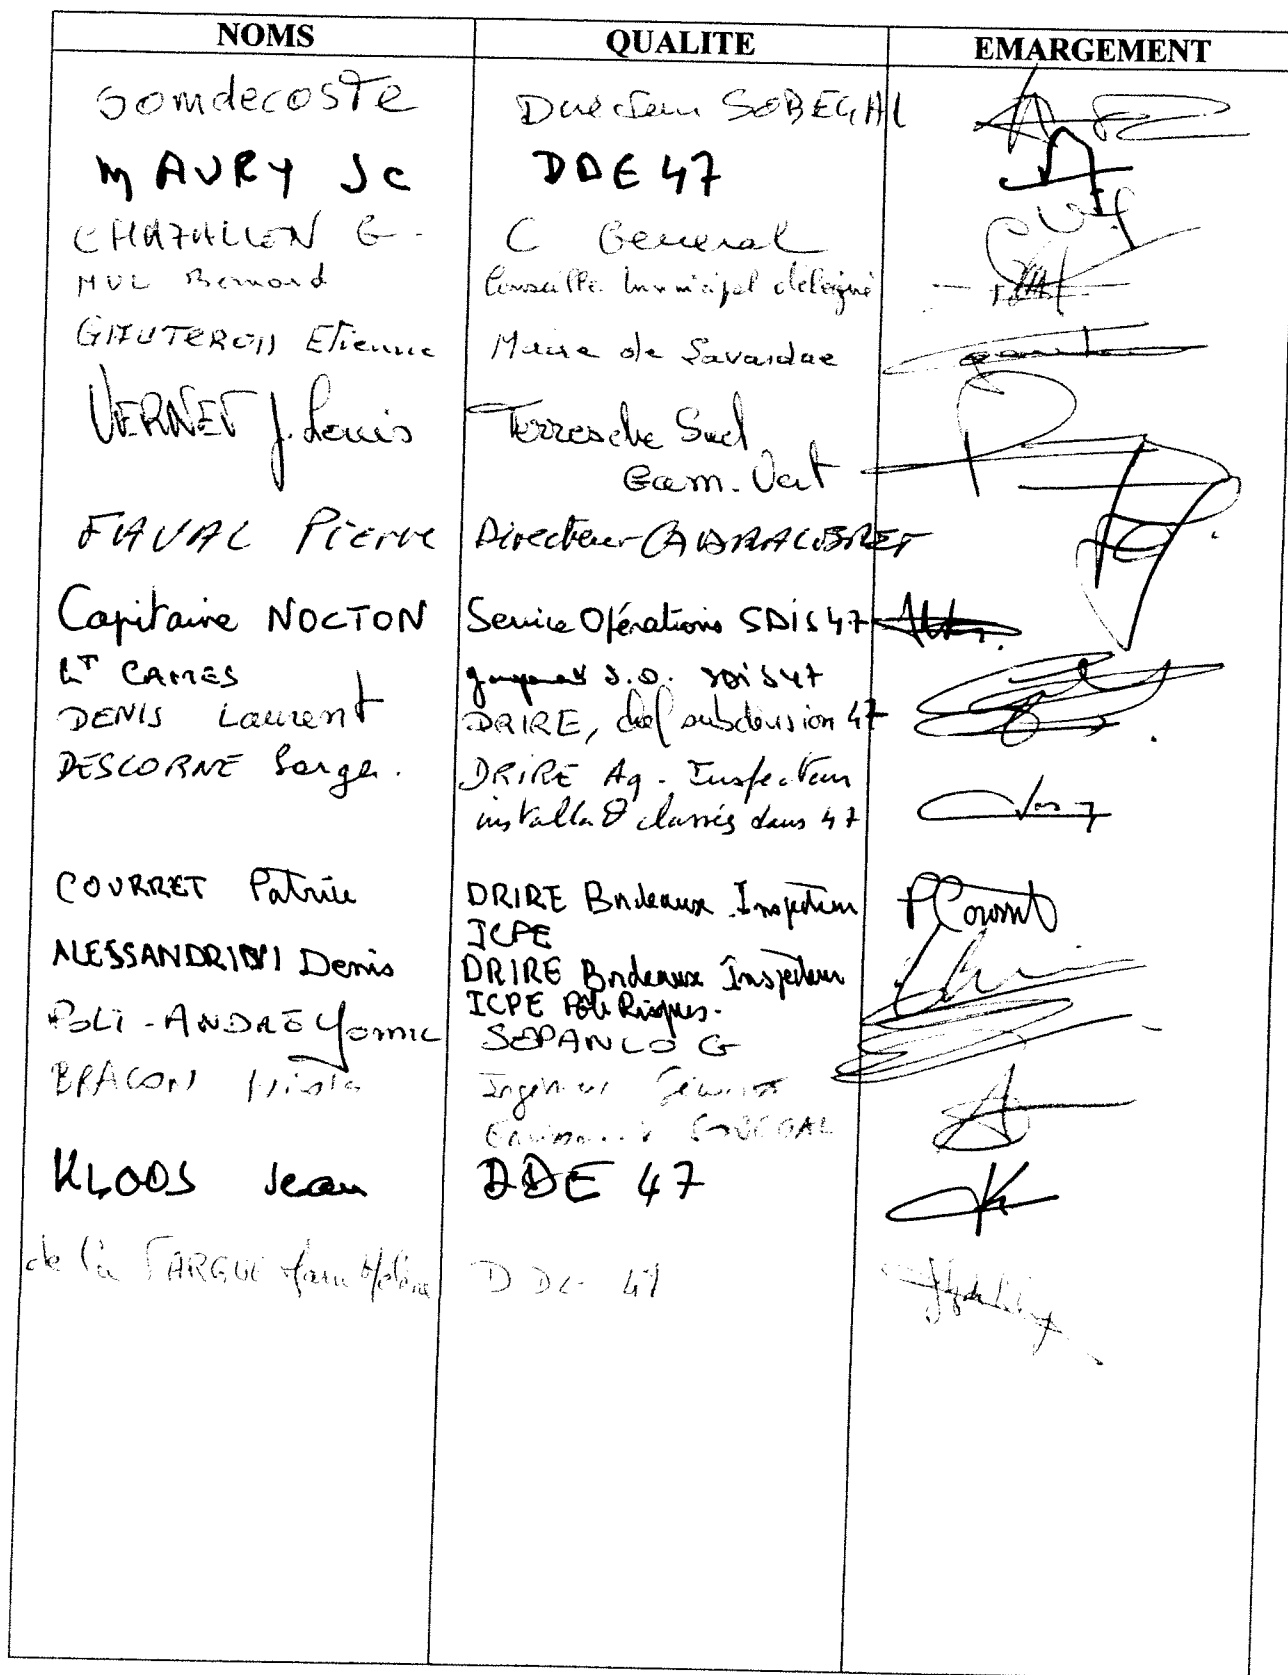 NOMS QUALITE EMARGEMENT
Somdecoste Directeur SOBEGAL
MAURY JC DDE 47
CHAZALLON G. C General
Bernard Conseiller municipal délégué
GAUTERON Etienne Maire de Lavardac
VERNET J. Louis Terres de Sud
Gam. Vert
FAVAL Pierre Directeur
Capitaine NOCTON Service Opérations SDIS 47
LT CAMES S.O. SDIS 47
DENIS Laurent DRIRE, chef subdivision 47
DESCORNE Serge. DRIRE Ag - Inspecteur
installaº classées dans 47
COURRET Patrice DRIRE Bordeaux Inspecteur P Courret
ICPE
ALESSANDRINI Denis DRIRE Bordeaux Inspecteur
ICPE Pôle Risques.
POLI - ANDRE SEPANLOG
BRACON Ingénieur
SOBEGAL
KLOOS Jean DDE 47
de la FARGUE